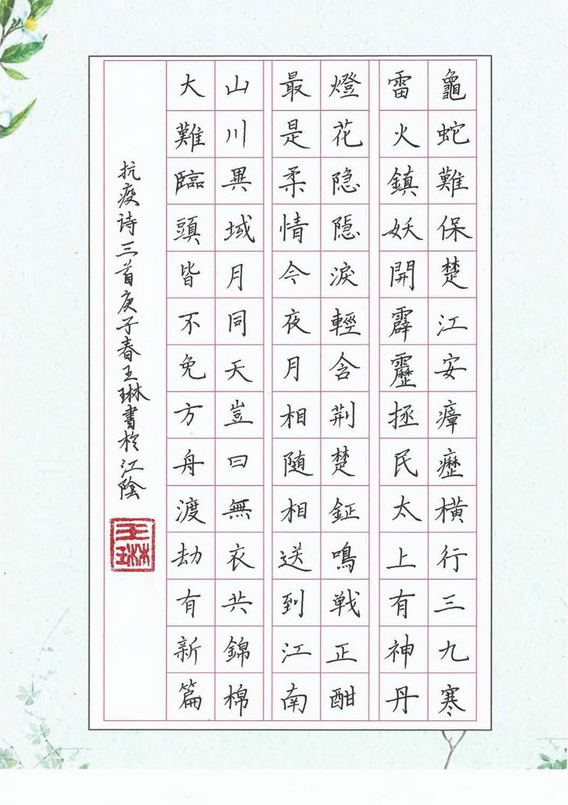 龜蛇難保楚江安瘴癧橫行三九寒
雷火鎮妖開霹靂拯民太上有神丹
燈花隐隠淚輕含荆楚鉦鳴戦正酣
最是柔情今夜月相随相送到江南
山川異域月同天豈曰無衣共錦棉
大難臨頭皆不免方舟渡劫有新篇
抗疫诗三首庚子春王琳書於江陰
王琳